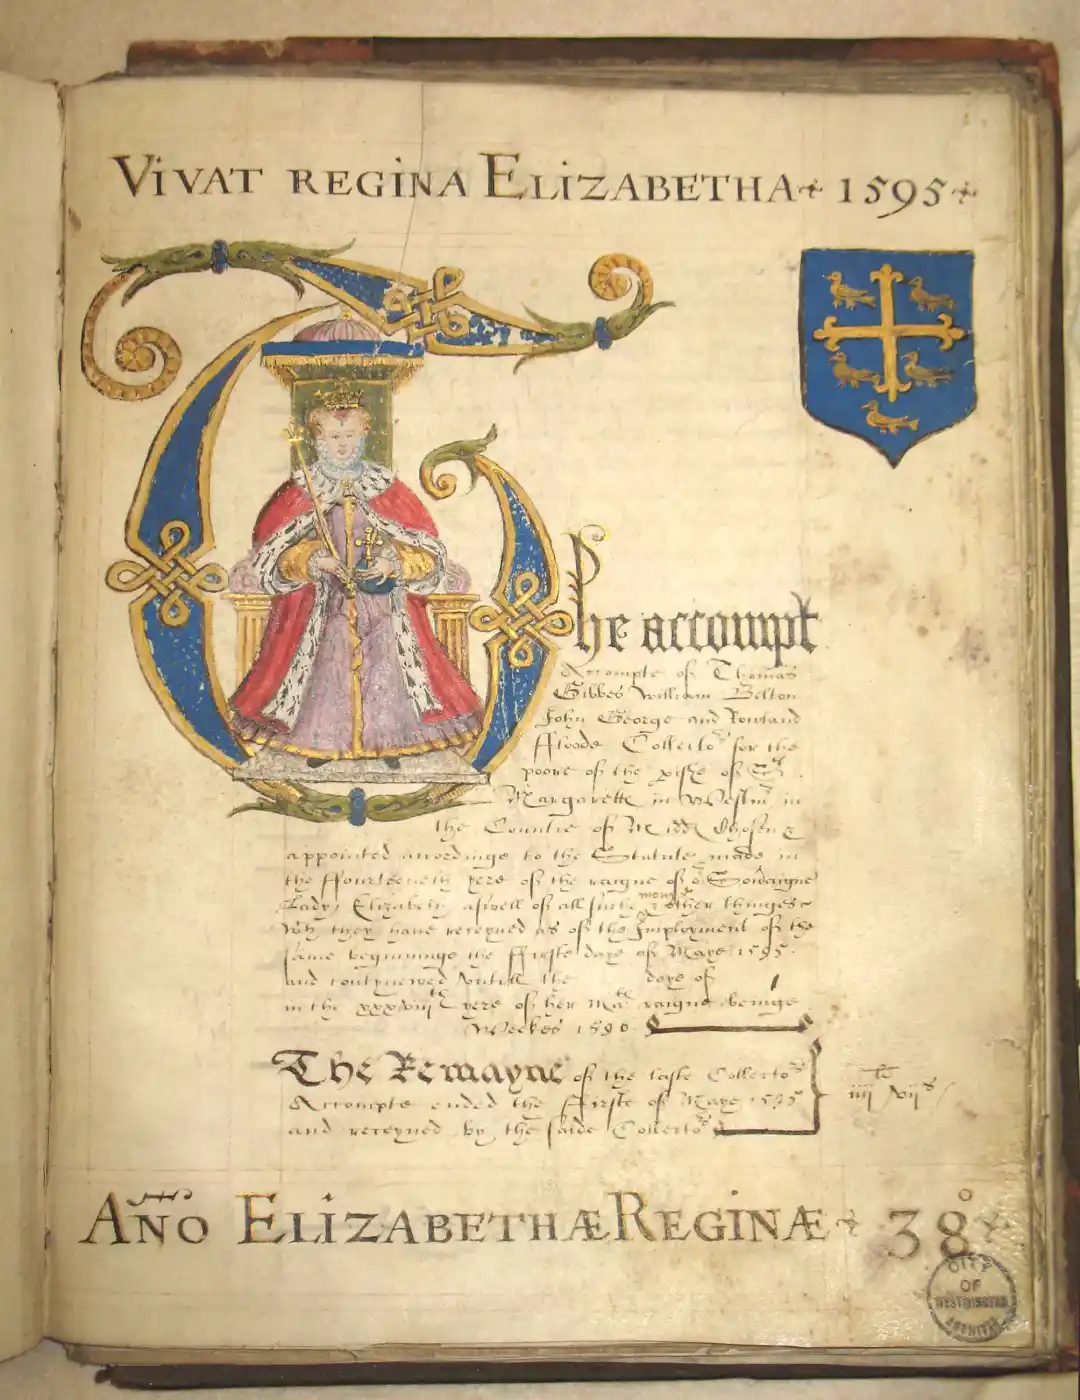 VIVAT REGINA ELIZABETHA 1595
The accompt
Accompte of Thomas
Gibbes William Belton
John George and Rowland
ffloode Collectors for the
poore of the pishe of St
Margarette in Westmr in
the Countie of Midd Chosen &
appointed accordinge to the Statute made in
the ffourteeneth yere of the raigne of or Soveraigne
Lady Elizabeth aswell of all suche mony & other thinges
wch they have receyved as of the Imployment of the
same beginninge the ffirste daye of Maye 1595
and contynewed untill the daye of
in the xxxviijth yere of her Mats raigne beinge
Weekes 1590
The Remayne of the laste Collectors
Accompte ended the ffirste of Maye 1595
and receyved by the saide Collectors
AÑO ELIZABETHÆ REGINÆ 38º
CITY OF WESTMINSTER ARCHIVES